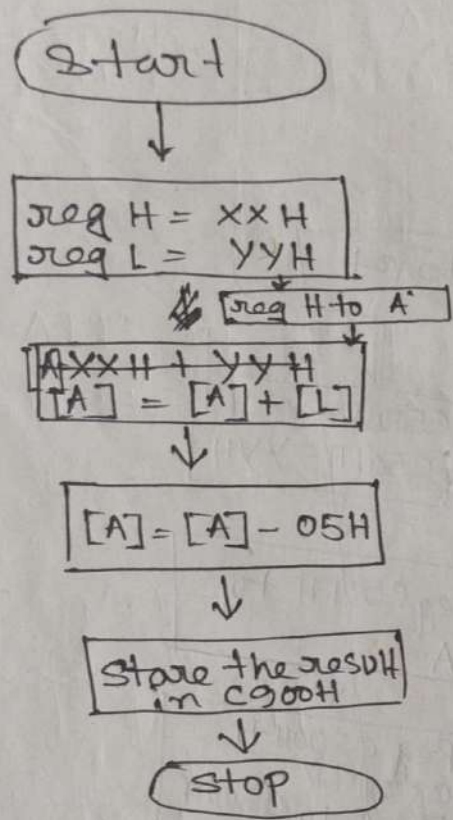 Start
reg H = XXH
reg L = YYH
reg H to A
[A] XXH + YYH
[A] = [A] + [L]
[A] = [A] - 05H
Store the result
in C900H
Stop